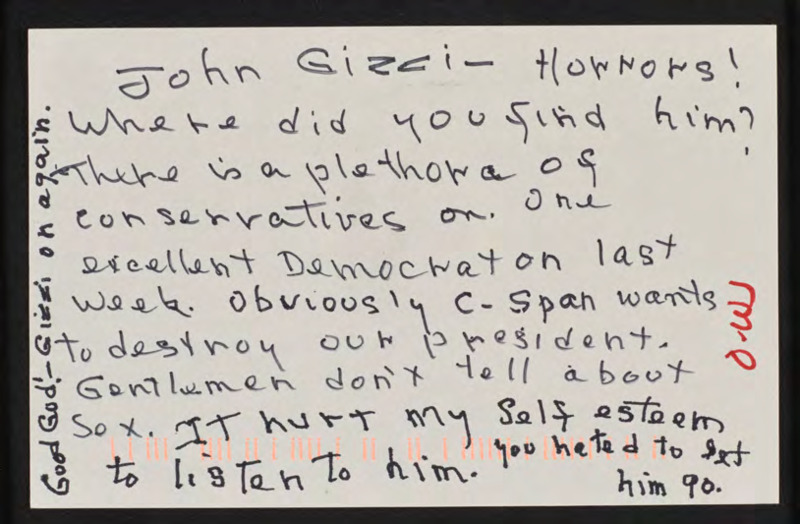 John Gizzi - Horrors!
Where did you find him?
There is a plethora of
conservatives on. One
excellent Democrat on last
week. Obviously C-Span wants
to destroy our president.
Gentlemen don't tell about
sex. It hurt my self esteem
to listen to him. you hated to let
him go.
Good God! - Gizzi on again.